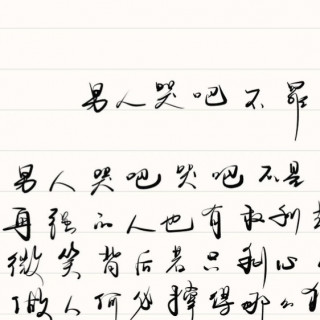 男人哭吧不罪
男人哭吧哭吧不是
再强的人也有权利
微笑背后若只剩心
做人何必撑得那么